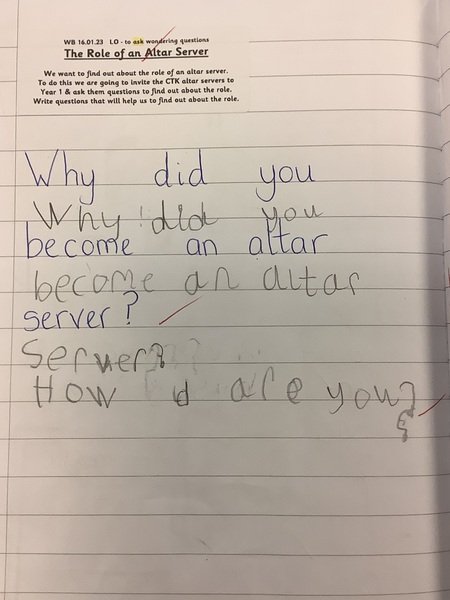 WB 16.01.23 LO - to ask wondering questions
The Role of an Altar Server
We want to find out about the role of an altar server.
To do this we are going to invite the CTK altar servers to
Year 1 & ask them questions to find out about the role.
Write questions that will help us to find out about the role.
Why did you
Why did you
become an altar
become an altar
server?
Server?
How d are you?